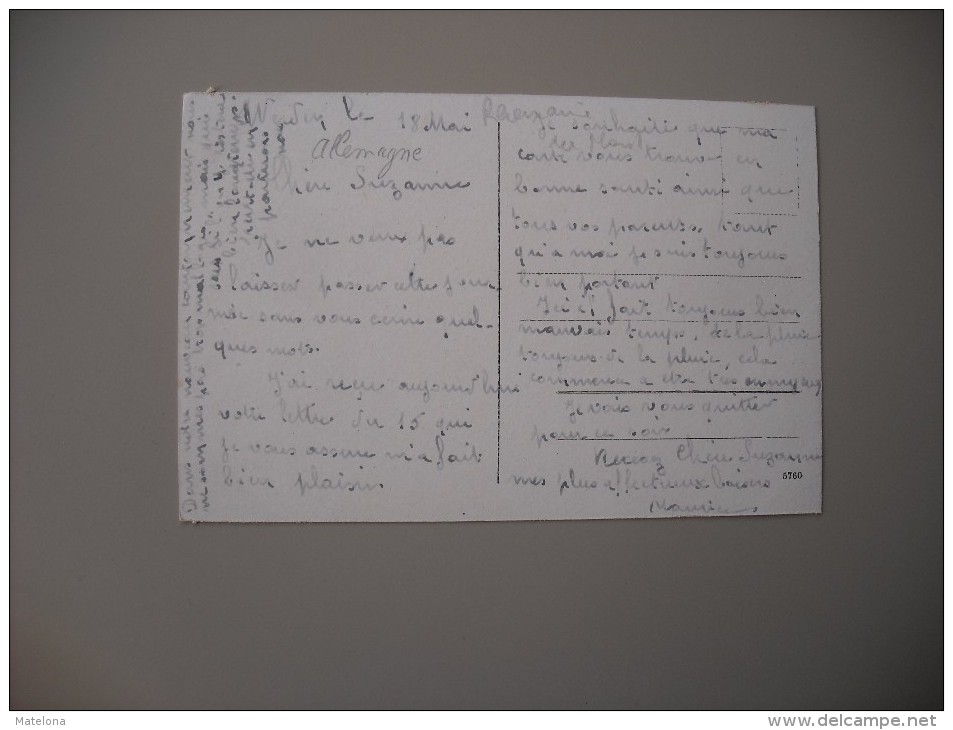 le 18 Mai
Allemagne
Chère Suzanne
Je ne veux pas
laisser passer cette jour
née sans vous écrire quel-
ques mots.
J'ai reçu aujourd'hui
votre lettre du 15 qui
je vous assure m'a fait
bien plaisir
Je souhaite que ma
carte vous trouve en
bonne santé ainsi que
tous vos parents, tant
qu'à moi je suis toujours
bien portant
Ici il fait toujours bien
mauvais temps, de la pluie
toujours de la pluie, cela
commence a être très ennuyeux
Je vais vous quitter
pour ce soir
Recevez Chère Suzanne
mes plus affectueux baisers
Maurice
5760
Dans notre nouveau cantonnement nous
ne sommes pas trop mal
Matelona
www.delcampe.net